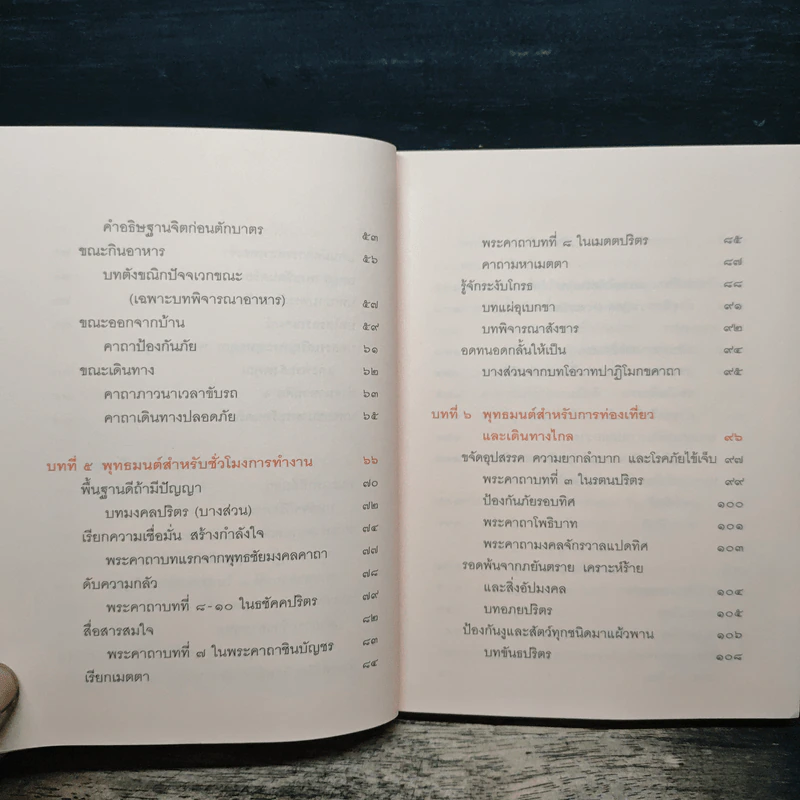 คำอธิษฐานจิตก่อนตักบาตร ๕๓
ขณะกินอาหาร ๕๖
บทตังขณิกปัจจเวกขณะ
(เฉพาะบทพิจารณาอาหาร) ๕๗
ขณะออกจากบ้าน ๕๙
คาถาป้องกันภัย ๖๑
ขณะเดินทาง ๖๒
คาถาภาวนาเวลาขับรถ ๖๓
คาถาเดินทางปลอดภัย ๖๕
บทที่ ๕ พุทธมนต์สำหรับชั่วโมงการทำงาน ๖๖
พื้นฐานดีถ้ามีปัญญา ๗๐
บทมงคลปริตร (บางส่วน) ๗๒
เรียกความเชื่อมั่น สร้างกำลังใจ ๗๔
พระคาถาบทแรกจากพุทธชัยมงคลคาถา ๗๗
ดับความกลัว ๗๘
พระคาถาบทที่ ๘-๑๐ ในธชัคคปริตร ๗๙
สื่อสารสมใจ ๘๒
พระคาถาบทที่ ๗ ในพระคาถาชินบัญชร ๘๓
เรียกเมตตา ๘๔
พระคาถาบทที่ ๘ ในเมตตปริตร ๘๕
คาถามหาเมตตา ๘๗
รู้จักระงับโกรธ ๘๘
บทแผ่อุเบกขา ๙๑
บทพิจารณาสังขาร ๙๒
อดทนอดกลั้นให้เป็น ๙๔
บางส่วนจากบทโอวาทปาฏิโมกขคาถา ๙๕
บทที่ ๖ พุทธมนต์สำหรับการท่องเที่ยว
และเดินทางไกล ๙๖
ขจัดอุปสรรค ความยากลำบาก และโรคภัยไข้เจ็บ ๙๗
พระคาถาบทที่ ๓ ในรตนปริตร ๙๙
ป้องกันภัยรอบทิศ ๑๐๐
พระคาถาโพธิบาท ๑๐๑
พระคามงคลจักรวาลแปดทิศ ๑๐๓
รอดพ้นจากภยันตราย เคราะห์ร้าย
และสิ่งอัปมงคล ๑๐๔
บทอภยปริตร ๑๐๕
ป้องกันงูและสัตว์ทุกชนิดมาแผ้วพาน ๑๐๖
บทขันธปริตร ๑๐๘